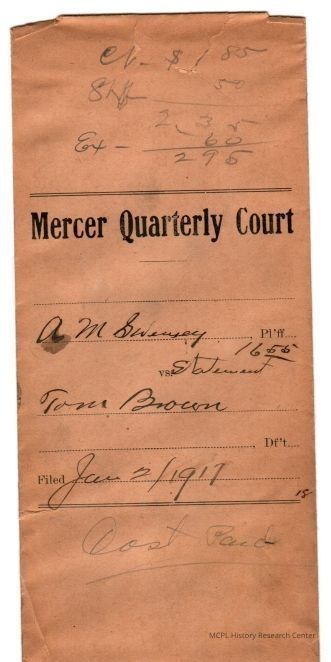 Ck - $ 1 85
Shff 50
2 35
Ex - 60
2 95
Mercer Quarterly Court
A M Swensey Pl'ff
16 55
vs. Statement
Tom Brown
Df't
Filed Jan 2/1917
Cost Paid
MCPL History Research Center